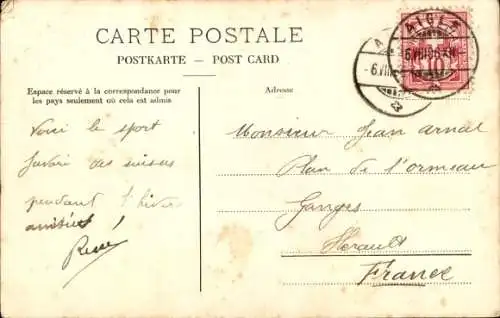 CARTE POSTALE
POSTKARTE — POST CARD
AIGLE
6.VIII
10
Espace réservé à la correspondance pour
les pays seulement où cela est admis
Adresse
Voici le sport
favori des suisses
pendant l'hiver
amitiés !
René
Monsieur Jean Arnal
Plan de l'ormeau
Ganges
Hérault
France